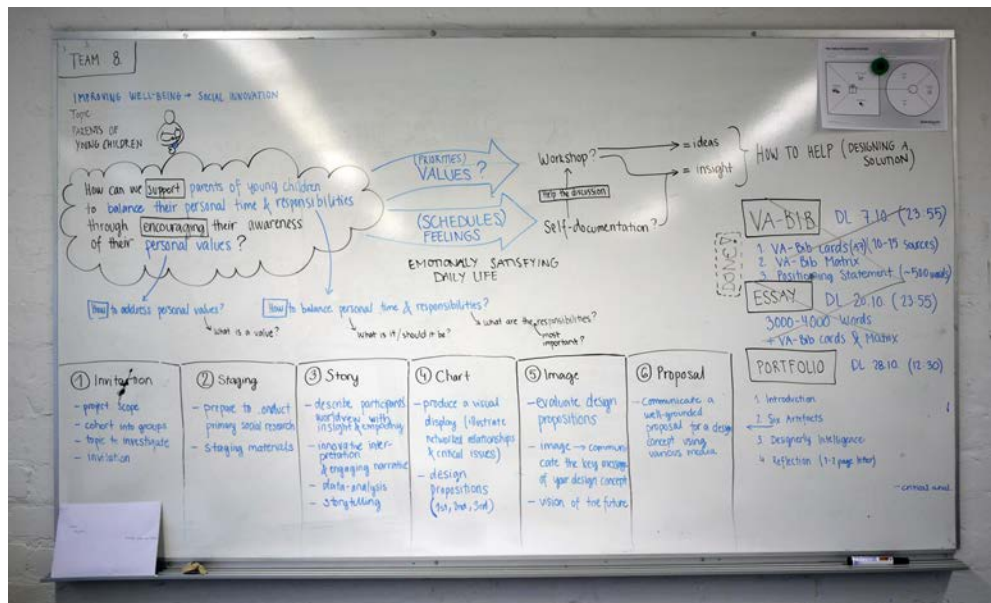 TEAM 8.
IMPROVING WELL-BEING → SOCIAL INNOVATION
Topic
PARENTS OF
YOUNG CHILDREN
How can we support parents of young children
to balance their personal time & responsibilities
through encouraging their awareness
of their personal values?
(PRIORITIES)
VALUES?
(SCHEDULES)
FEELINGS
EMOTIONALLY SATISFYING
DAILY LIFE
Workshop?
Help the discussion
Self-documentation?
= ideas
= insight
HOW TO HELP (DESIGNING A
SOLUTION)
How to address personal values?
what is a value?
How to balance personal time & responsibilities?
what is it/should it be?
what are the responsibilities?
most
important?
DONE
VA-BIB DL 7.10. (23:55)
1. VA-Bib cards (10-15 sources)
2. VA-Bib Matrix
3. Positioning Statement (~500 words)
ESSAY DL 20.10. (23:55)
3000-4000 Words
+ VA-Bib cards & Matrix
PORTFOLIO DL 28.10. (12:30)
1. Introduction
2. Six Artifacts
3. Designerly Intelligence
4. Reflection (1-2 page letter)
- critical
1 Invitation
- project scope
- cohort into groups
- topic to investigate
- invitation
2 Staging
- prepare to conduct
primary social research
- staging materials
3 Story
- describe participants
worldview with
insight & empathy
- innovative inter-
pretation
& engaging narrative
- data-analysis
- storytelling
4 Chart
- produce a visual
display (illustrate
networked relationships
& critical issues)
- design
propositions
(1st, 2nd, 3rd)
5 Image
- evaluate design
propositions
- image → communi
cate the key message
of your design concept
- vision of the future
6 Proposal
- communicate a
well-grounded
proposal for a design
concept using
various media